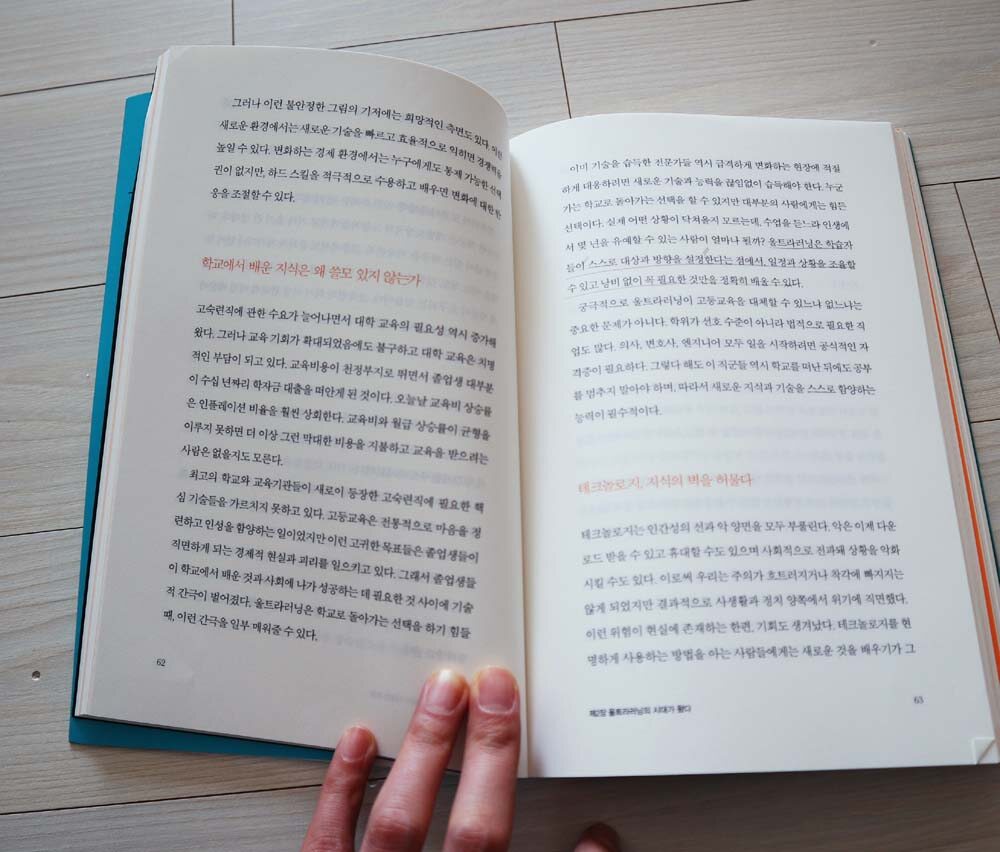 그러나 이런 불안정한 그림의 기저에는 희망적인 측면도 있다. 이런
새로운 환경에서는 새로운 기술을 빠르고 효율적으로 익히면 경쟁력을
높일 수 있다. 변화하는 경제 환경에서는 누구에게도 통제 가능한 선택
권이 없지만, 하드 스킬을 적극적으로 수용하고 배우면 변화에 대한 반
응을 조절할 수 있다.
학교에서 배운 지식은 왜 쓸모 있지 않는가
고숙련직에 관한 수요가 늘어나면서 대학 교육의 필요성 역시 증가해
왔다. 그러나 교육 기회가 확대되었음에도 불구하고 대학 교육은 치명
적인 부담이 되고 있다. 교육비용이 천정부지로 뛰면서 졸업생 대부분
이 수십 년짜리 학자금 대출을 떠안게 된 것이다. 오늘날 교육비 상승률
은 인플레이션 비율을 훨씬 상회한다. 교육비와 월급 상승률이 균형을
이루지 못하면 더 이상 그런 막대한 비용을 지불하고 교육을 받으려는
사람은 없을지도 모른다.
최고의 학교와 교육기관들이 새로이 등장한 고숙련직에 필요한 핵
심 기술들을 가르치지 못하고 있다. 고등교육은 전통적으로 마음을 정
련하고 인성을 함양하는 일이었지만 이런 고귀한 목표들은 졸업생들이
직면하게 되는 경제적 현실과 괴리를 일으키고 있다. 그래서 졸업생들
이 학교에서 배운 것과 사회에 나가 성공하는 데 필요한 것 사이에 기술
적 간극이 벌어졌다. 울트라러닝은 학교로 돌아가는 선택을 하기 힘들
때, 이런 간극을 일부 메워줄 수 있다.
62
이미 기술을 습득한 전문가들 역시 급격하게 변화하는 현장에 적절
하게 대응하려면 새로운 기술과 능력을 끊임없이 습득해야 한다. 누군
가는 학교로 돌아가는 선택을 할 수 있지만 대부분의 사람에게는 힘든
선택이다. 실제 어떤 상황이 닥쳐올지 모르는데, 수업을 듣느라 인생에
서 몇 년을 유예할 수 있는 사람이 얼마나 될까? 울트라러닝은 학습자
들이 스스로 대상과 방향을 설정한다는 점에서, 일정과 상황을 조율할
수 있고 낭비 없이 꼭 필요한 것만을 정확히 배울 수 있다.
궁극적으로 울트라러닝이 고등교육을 대체할 수 있느냐 없느냐는
중요한 문제가 아니다. 학위가 선호 수준이 아니라 법적으로 필요한 직
업도 많다. 의사, 변호사, 엔지니어 모두 일을 시작하려면 공식적인 자
격증이 필요하다. 그렇다 해도 이 직군들 역시 학교를 떠난 뒤에도 공부
를 멈추지 말아야 하며, 따라서 새로운 지식과 기술을 스스로 함양하는
능력이 필수적이다.
테크놀로지, 지식의 벽을 허물다
테크놀로지는 인간성의 선과 악 양면을 모두 부풀린다. 악은 이제 다운
로드 받을 수 있고 휴대할 수도 있으며 사회적으로 전파돼 상황을 악화
시킬 수도 있다. 이로써 우리는 주의가 흐트러지거나 착각에 빠지지는
않게 되었지만 결과적으로 사생활과 정치 양쪽에서 위기에 직면했다.
이런 위험이 현실에 존재하는 한편, 기회도 생겨났다. 테크놀로지를 현
명하게 사용하는 방법을 아는 사람들에게는 새로운 것을 배우기가 그
제2장 울트라러닝의 시대가 왔다
63